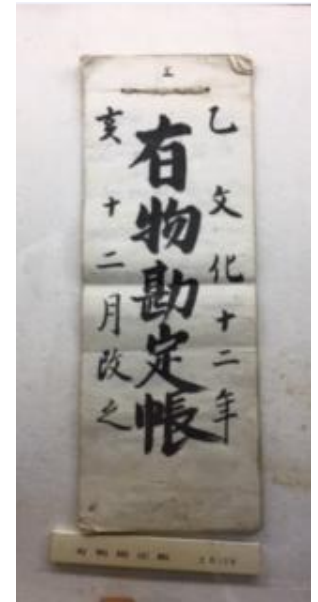 乙文化十二年
有物勘定帳
亥十二月改之
有物勘定帳